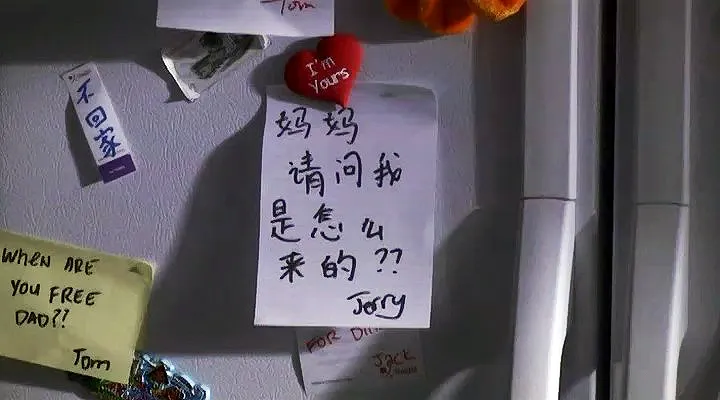 Tom
I'm
Yours
不回家
妈妈
请问我
是怎么
来的??
Jerry
WHEN ARE
YOU FREE
DAD??
Tom
FOR DIN
Jack